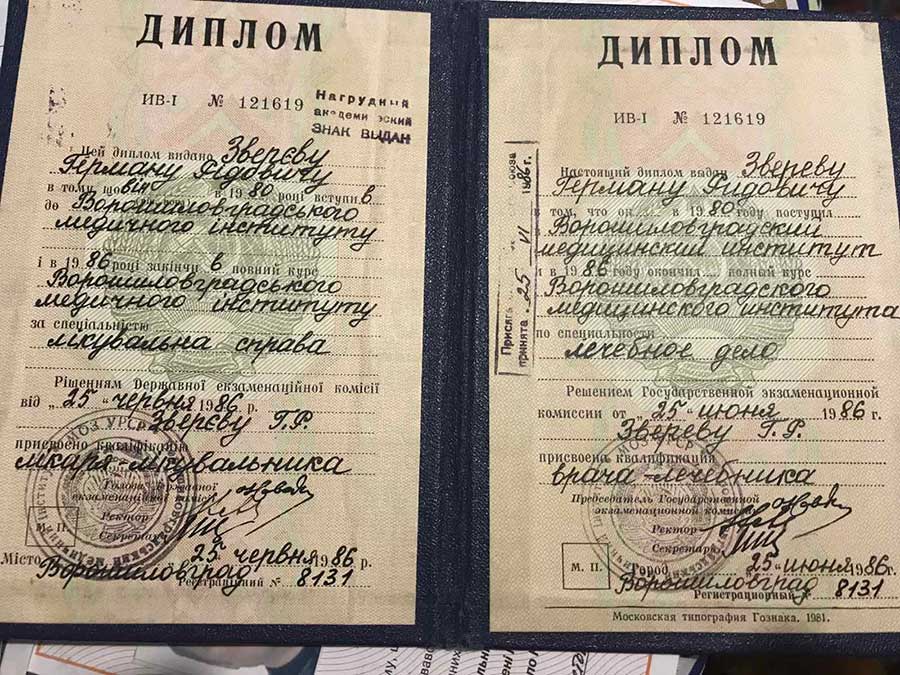 ДИПЛОМ
ИВ-I № 121619
Нагрудный
академический
ЗНАК ВЫДАН
Цей диплом видано Зверєву
Герману Рідовичу
в тому, що він в 1980 році вступив
до Ворошиловградського
медичного інституту
і в 1986 році закінчив повний курс
Ворошиловградського
медичного інституту
за спеціальністю
лікувальна справа
Рішенням Державної екзаменаційної комісії
від „25“ червня 1986 р.
Зверєву Г.Р.
присвоєно кваліфікацію
лікаря-лікувальника
Голова Державної
екзаменаційної комісії
Ректор
Секретар
М. П.
25 червня 1986 р.
Місто Ворошиловград
Реєстраційний № 8131
ДИПЛОМ
ИВ-I № 121619
Настоящий диплом выдан Звереву
Герману Ридовичу
в том, что он в 1980 году поступил
в Ворошиловградский
медицинский институт
и в 1986 году окончил полный курс
Ворошиловградского
медицинского института
по специальности
лечебное дело
Решением Государственной экзаменационной
комиссии от „25“ июня 1986 г.
Звереву Г.Р.
присвоена квалификация
врача-лечебника
Председатель Государственной
экзаменационной комиссии
Ректор
Секретарь
М. П.
Город „25“ июня 1986 г.
Ворошиловград
Регистрационный № 8131
Московская типография Гознака. 1981.
принята 25 VI 1986 г.